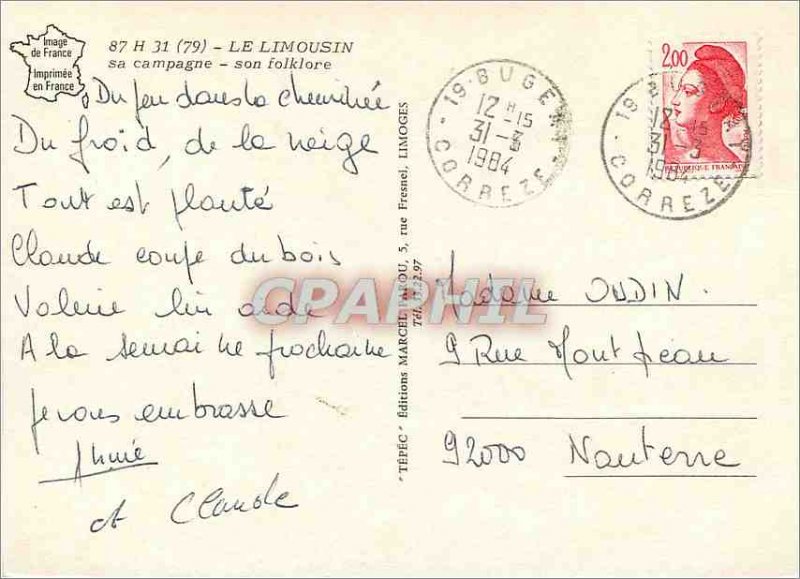 Image
de France
Imprimée
en France
87 H 31 (79) - LE LIMOUSIN
sa campagne - son folklore
Du feu dans la cheminée
Du froid, de la neige
Tout est planté
Claude coupe du bois
Valerie lui aide
A la semaine prochaine
Je vous embrasse
et Claude
"TÉPÉC" Éditions MARCEL FAROU, 5, rue Fresnel, LIMOGES
Tél.
19 · BUGEAT
12 H -15
31-3
1984
CORREZE
2,00
REPUBLIQUE FRANÇAISE
19
12 -15
31-3
1984
CORREZE
Madame OUDIN.
9 Rue Mont
92000 Nanterre
CPAPHIL